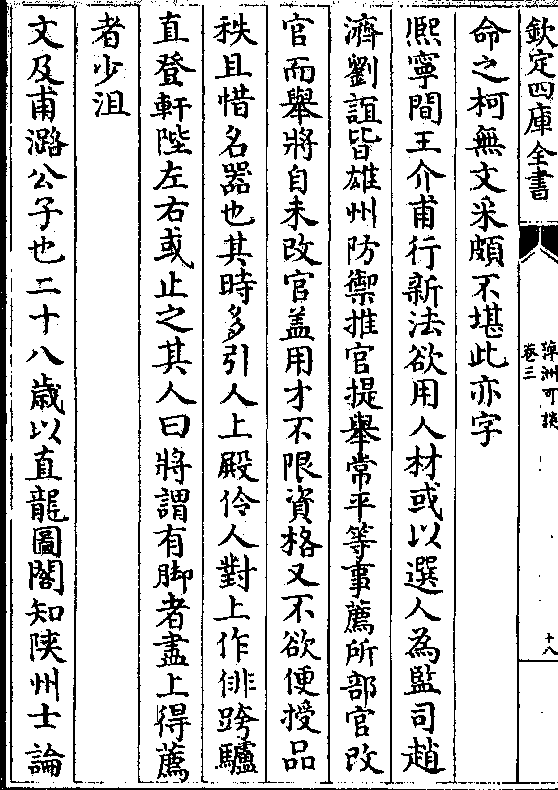 欽定四庫全書
萍洲可談
卷三
十八
命之柯無文采頗不堪此亦字
熈寧間王介甫行新法欲用人材或以選人為監司趙
濟劉誼皆雄州防禦推官提舉常平等事薦所部官改
官而舉將自未改官盖用才不限資格又不欲便授品
秩且惜名器也其時多引人上殿伶人對上作俳跨驢
直登軒陛左右或止之其人曰將謂有脚者盡上得薦
者少沮
文及甫潞公子也二十八歲以直龍圖閣知陜州士論